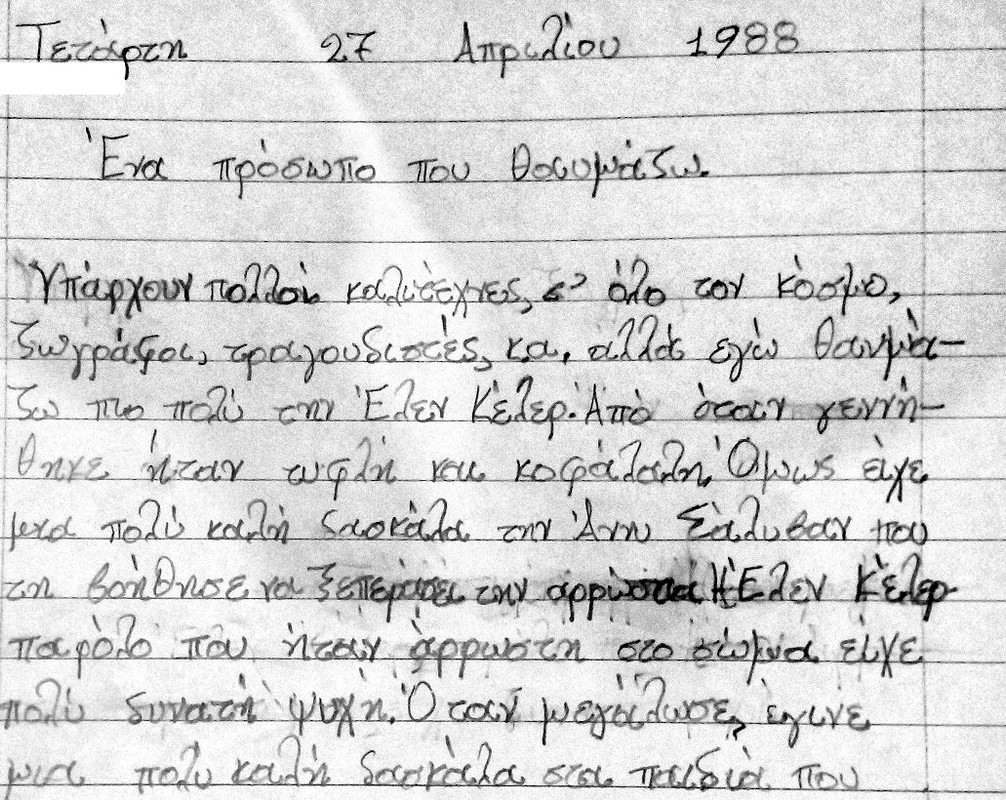 Τετάρτη 27 Απριλίου 1988
Ένα πρόσωπο που θαυμάζω.
Υπάρχουν πολλοί καλιτέχνες, σ' όλο τον κόσμο,
ζωγράφοι, τραγουδιστές, κα, αλλά εγώ θαυμά-
ζω πιο πολύ την Έλεν Κέλερ. Από όταν γεννή-
θηκε ήταν τυφλή και κοφάλαλη. Όμως είχε
μια πολύ καλή δασκάλα την Άνν Σάλυβαν που
τη βοήθησε να ξεπεράσει την αρρώστια. Η Έλεν Κέλερ
παρόλο που ήταν άρρωστη στο σώμα είχε
πολύ δυνατή ψυχή. Όταν μεγάλωσε, έγινε
μια πολύ καλή δασκάλα στα παιδιά που